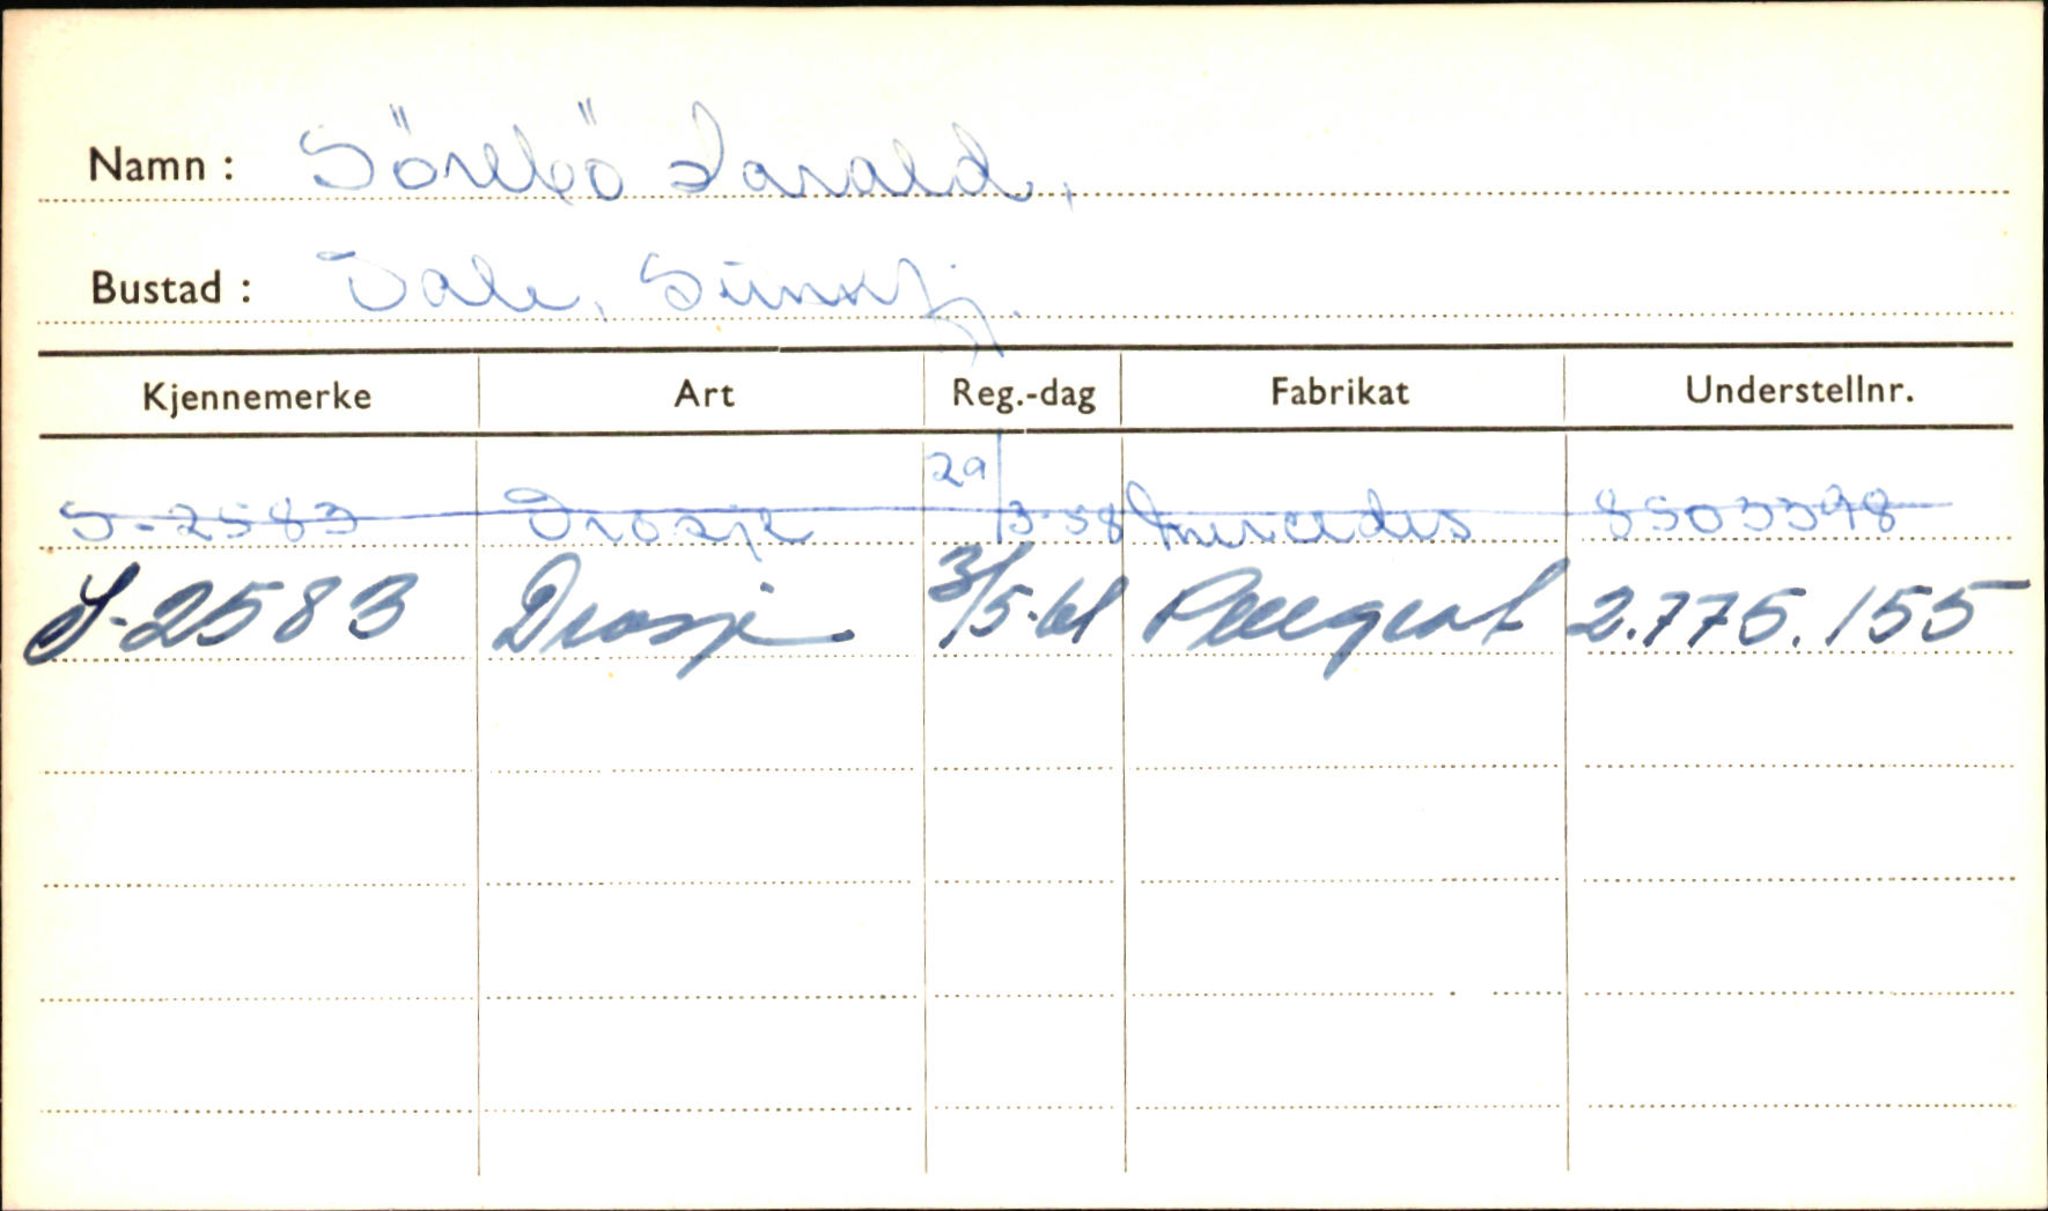 Namn : Sörebö Harald,
Bustad : Dale, Sunnfj.
Kjennemerke Art Reg.-dag Fabrikat Understellnr.
S-2583 Drosje 29/3-58 Mercedes 8503398
S-2583 Drosje 3/5-61 Peugeot 2.775.155